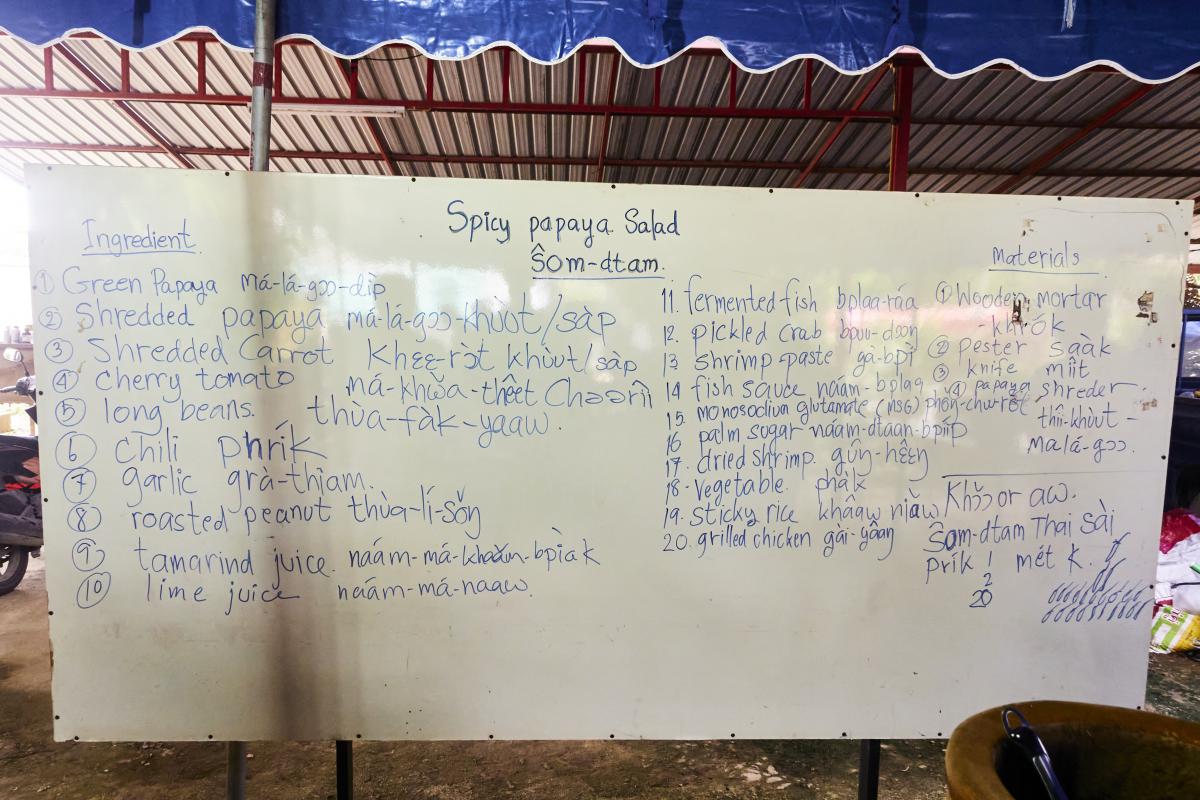 Spicy papaya Salad
Ŝom-dtam.
Ingredient
① Green Papaya má-lá-gɔɔ-dìp
② Shredded papaya má-lá-gɔɔ-khùut/sàp
③ Shredded Carrot Khɛɛ-rɔ̀t khùut/sàp
④ cherry tomato má-khʉ̌a-thêet Chəərîi
⑤ long beans. thùa-fàk-yaaw.
⑥ chili phrík
⑦ garlic grà-thiam.
⑧ roasted peanut thùa-lí-sǒŋ
⑨ tamarind juice. naám-má-khǎam-bpìak
⑩ lime juice naám-má-naaw.
11. fermented-fish bplaa-ráa
12. pickled crab bpuu-dɔɔŋ
13 shrimp paste gà-bpì
14 fish sauce náam-bplaa
15. monosodium glutamate (MSG) phǒŋ-chuurót
16 palm sugar náam-dtaan-bpíip
17. dried shrimp. gûŋ-hɛ̂ɛŋ
18. vegetable. phàk
19. sticky rice khâaw nǐaw
20. grilled chicken gài-yâaŋ
Materials
① Wooden mortar
-khrók
② Pester saàk
③ knife mîit
④ papaya shreder.
thîi-khùut-
malá-gɔɔ.
Khɔ̌ɔ or aw.
Ŝom-dtam Thai sài
prík 1 mét K.
2
20